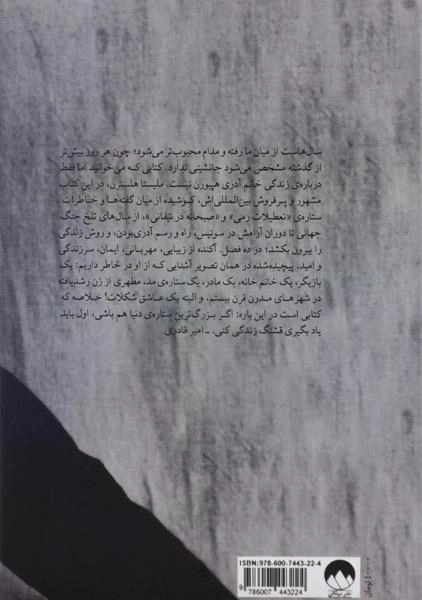 سال‌هاست از میان ما رفته و مدام محبوب‌تر می‌شود؛ چون هر روز بیش‌تر
از گذشته مشخص می‌شود جانشینی ندارد. کتابی که می‌خوانید اما فقط
درباره‌ی زندگی خانم آدری هپبورن نیست. ملیسا هلسترن، در این کتاب
مشهور و پرفروش بین‌المللی‌اش، کوشیده از میان گفته‌ها و خاطرات
ستاره‌ی «تعطیلات رمی» و «صبحانه در تیفانی»، از سال‌های تلخ جنگ
جهانی تا دوران آرامش در سوئیس، راه و رسم آدری‌بودن، و روش زندگی
را بیرون بکشد؛ در ده فصل. آکنده از زیبایی، مهربانی، ایمان، سرزندگی
و امید. پیچیده‌شده در همان تصویر آشنایی که از او در خاطر داریم: یک
بازیگر، یک خانم خانه، یک مادر، یک ستاره‌ی مد، مظهری از زن رشدیافته
در شهرهای مدرن قرن بیستم، و البته یک عاشق شکلات! خلاصه که
کتابی است در این باره: اگر بزرگ‌ترین ستاره‌ی دنیا هم باشی، اول باید
یاد بگیری قشنگ زندگی کنی. ـ امیر قادری
ISBN: 978-600-7443-22-4
9 786007 443224
تومان